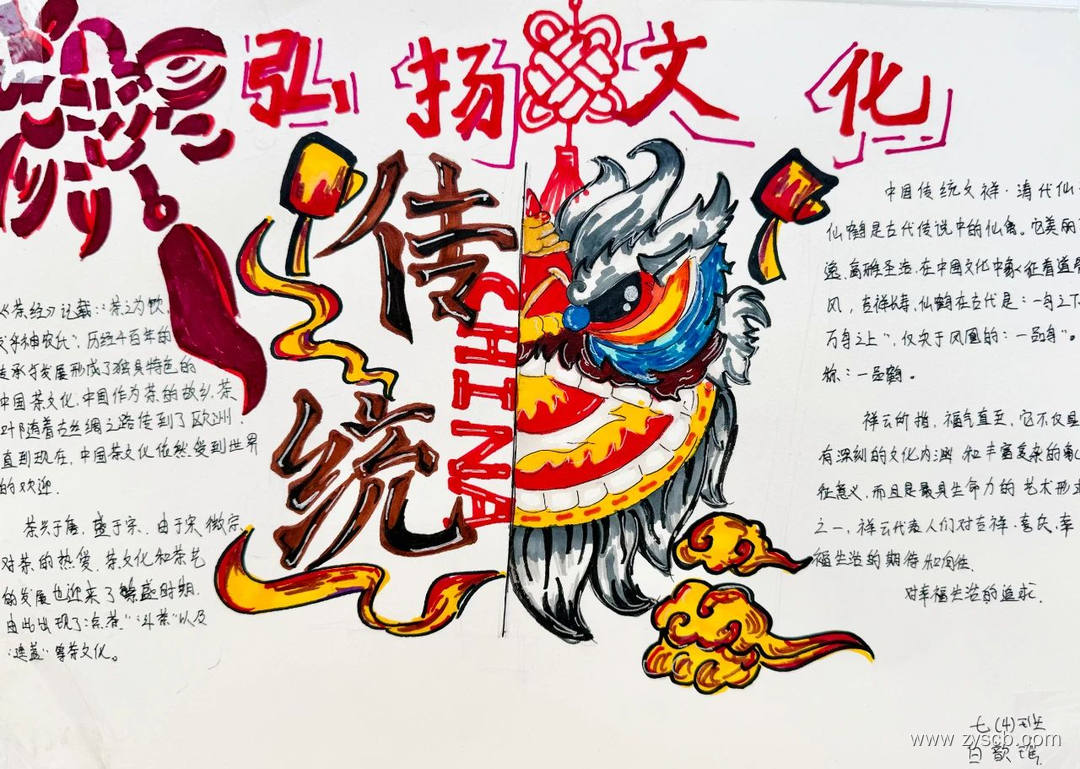 弘扬文化
传统
CHINA
《茶经》记载:"茶之为饮,
神农氏",历经千百年的
传承与发展形成了独具特色的
中国茶文化,中国作为茶的故乡,茶
叶随着古丝绸之路传到了欧洲.
直到现在,中国茶文化依然受到世界
的欢迎.
茶兴于唐,盛于宋.由于宋徽宗
对茶的热爱,茶文化和茶艺
的发展也迎来了繁盛时期.
由此出现了"点茶""斗茶"以及
等茶文化。
中国传统文祥·清代仙
仙鹤是古代传说中的仙禽。它美丽
逸,高雅圣洁,在中国文化中象征着道
风,吉祥长寿,仙鹤在古代是:一鸟之下
万鸟之上",仅次于凤凰的:一品鸟"。
称:一品鹤。
祥云所指,福气直至,它不仅
有深刻的文化内涵 和丰富多采的
征意义,而且是最具生命力的艺术形
之一,祥云代表人们对吉祥·喜庆、幸
福生活的期待和向往.
对幸福生活的追求.
七(4)班
白歆
www.zyscb.com